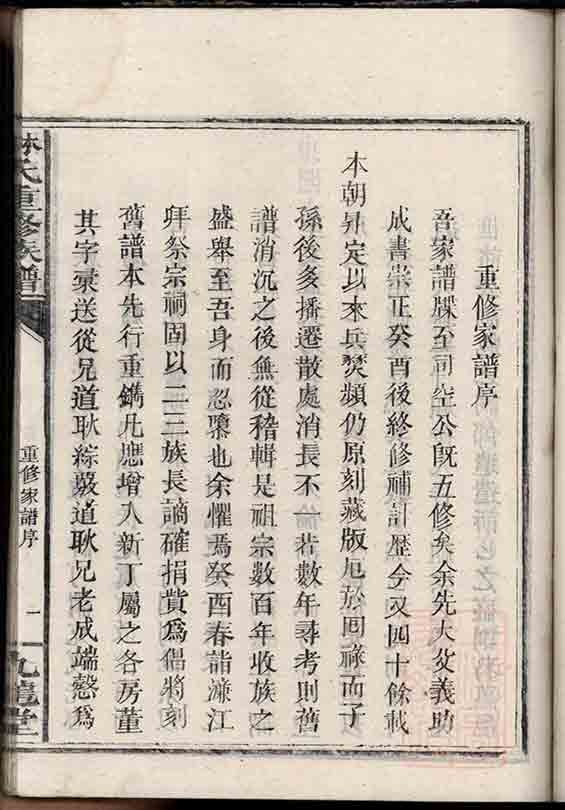 重修家譜序
吾家譜牒至司空公旣五修矣余先大父義助
成書崇正癸酉後終修補訂歷今又四十餘載
本朝昇定以來兵燹頻仍原刻藏版厄於回祿而子
孫後多播遷散處消長不一若數年尋考則舊
譜消沉之後無從稽輯是祖宗數百年收族之
盛舉至吾身而忍隳也余懼焉癸酉春詣濂江
拜祭宗祠固以二三族長謫確捐貲爲倡將刻
舊譜本先行重鐫凡應增入新丁屬之各房董
其字彔送從兄道耿綜覈道耿兄老成端慤爲
林氏重修族譜
重修家譜序
一
九龍堂